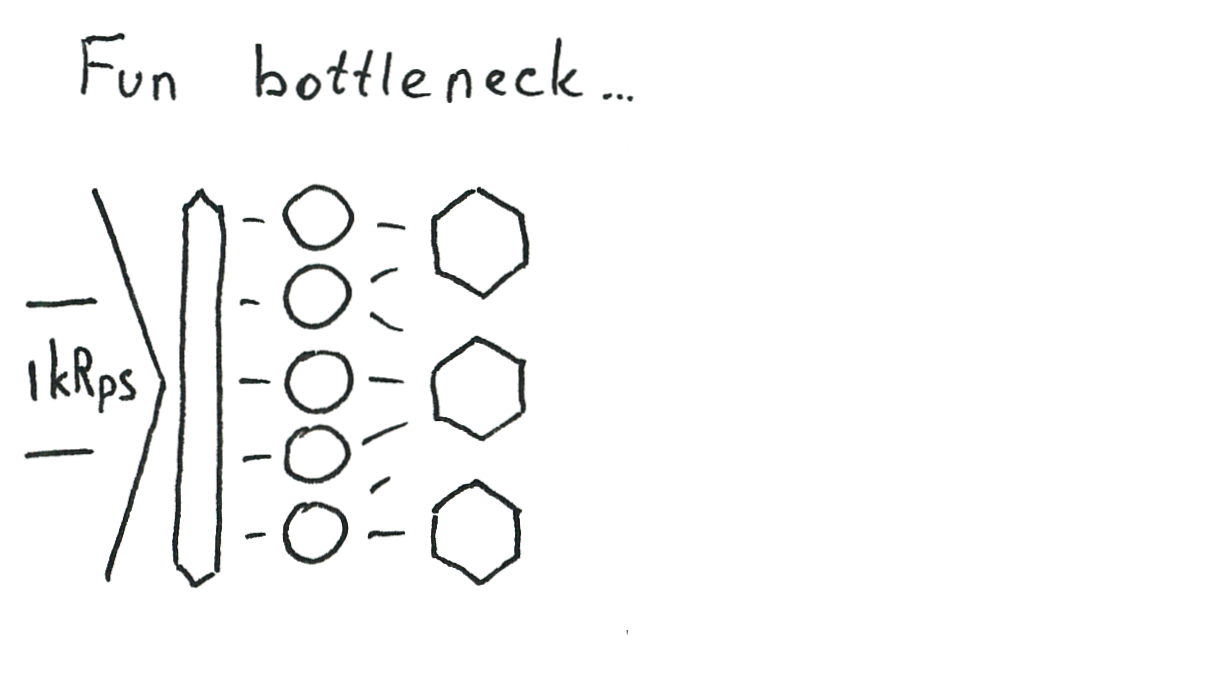 Fun bottleneck...
1kRps